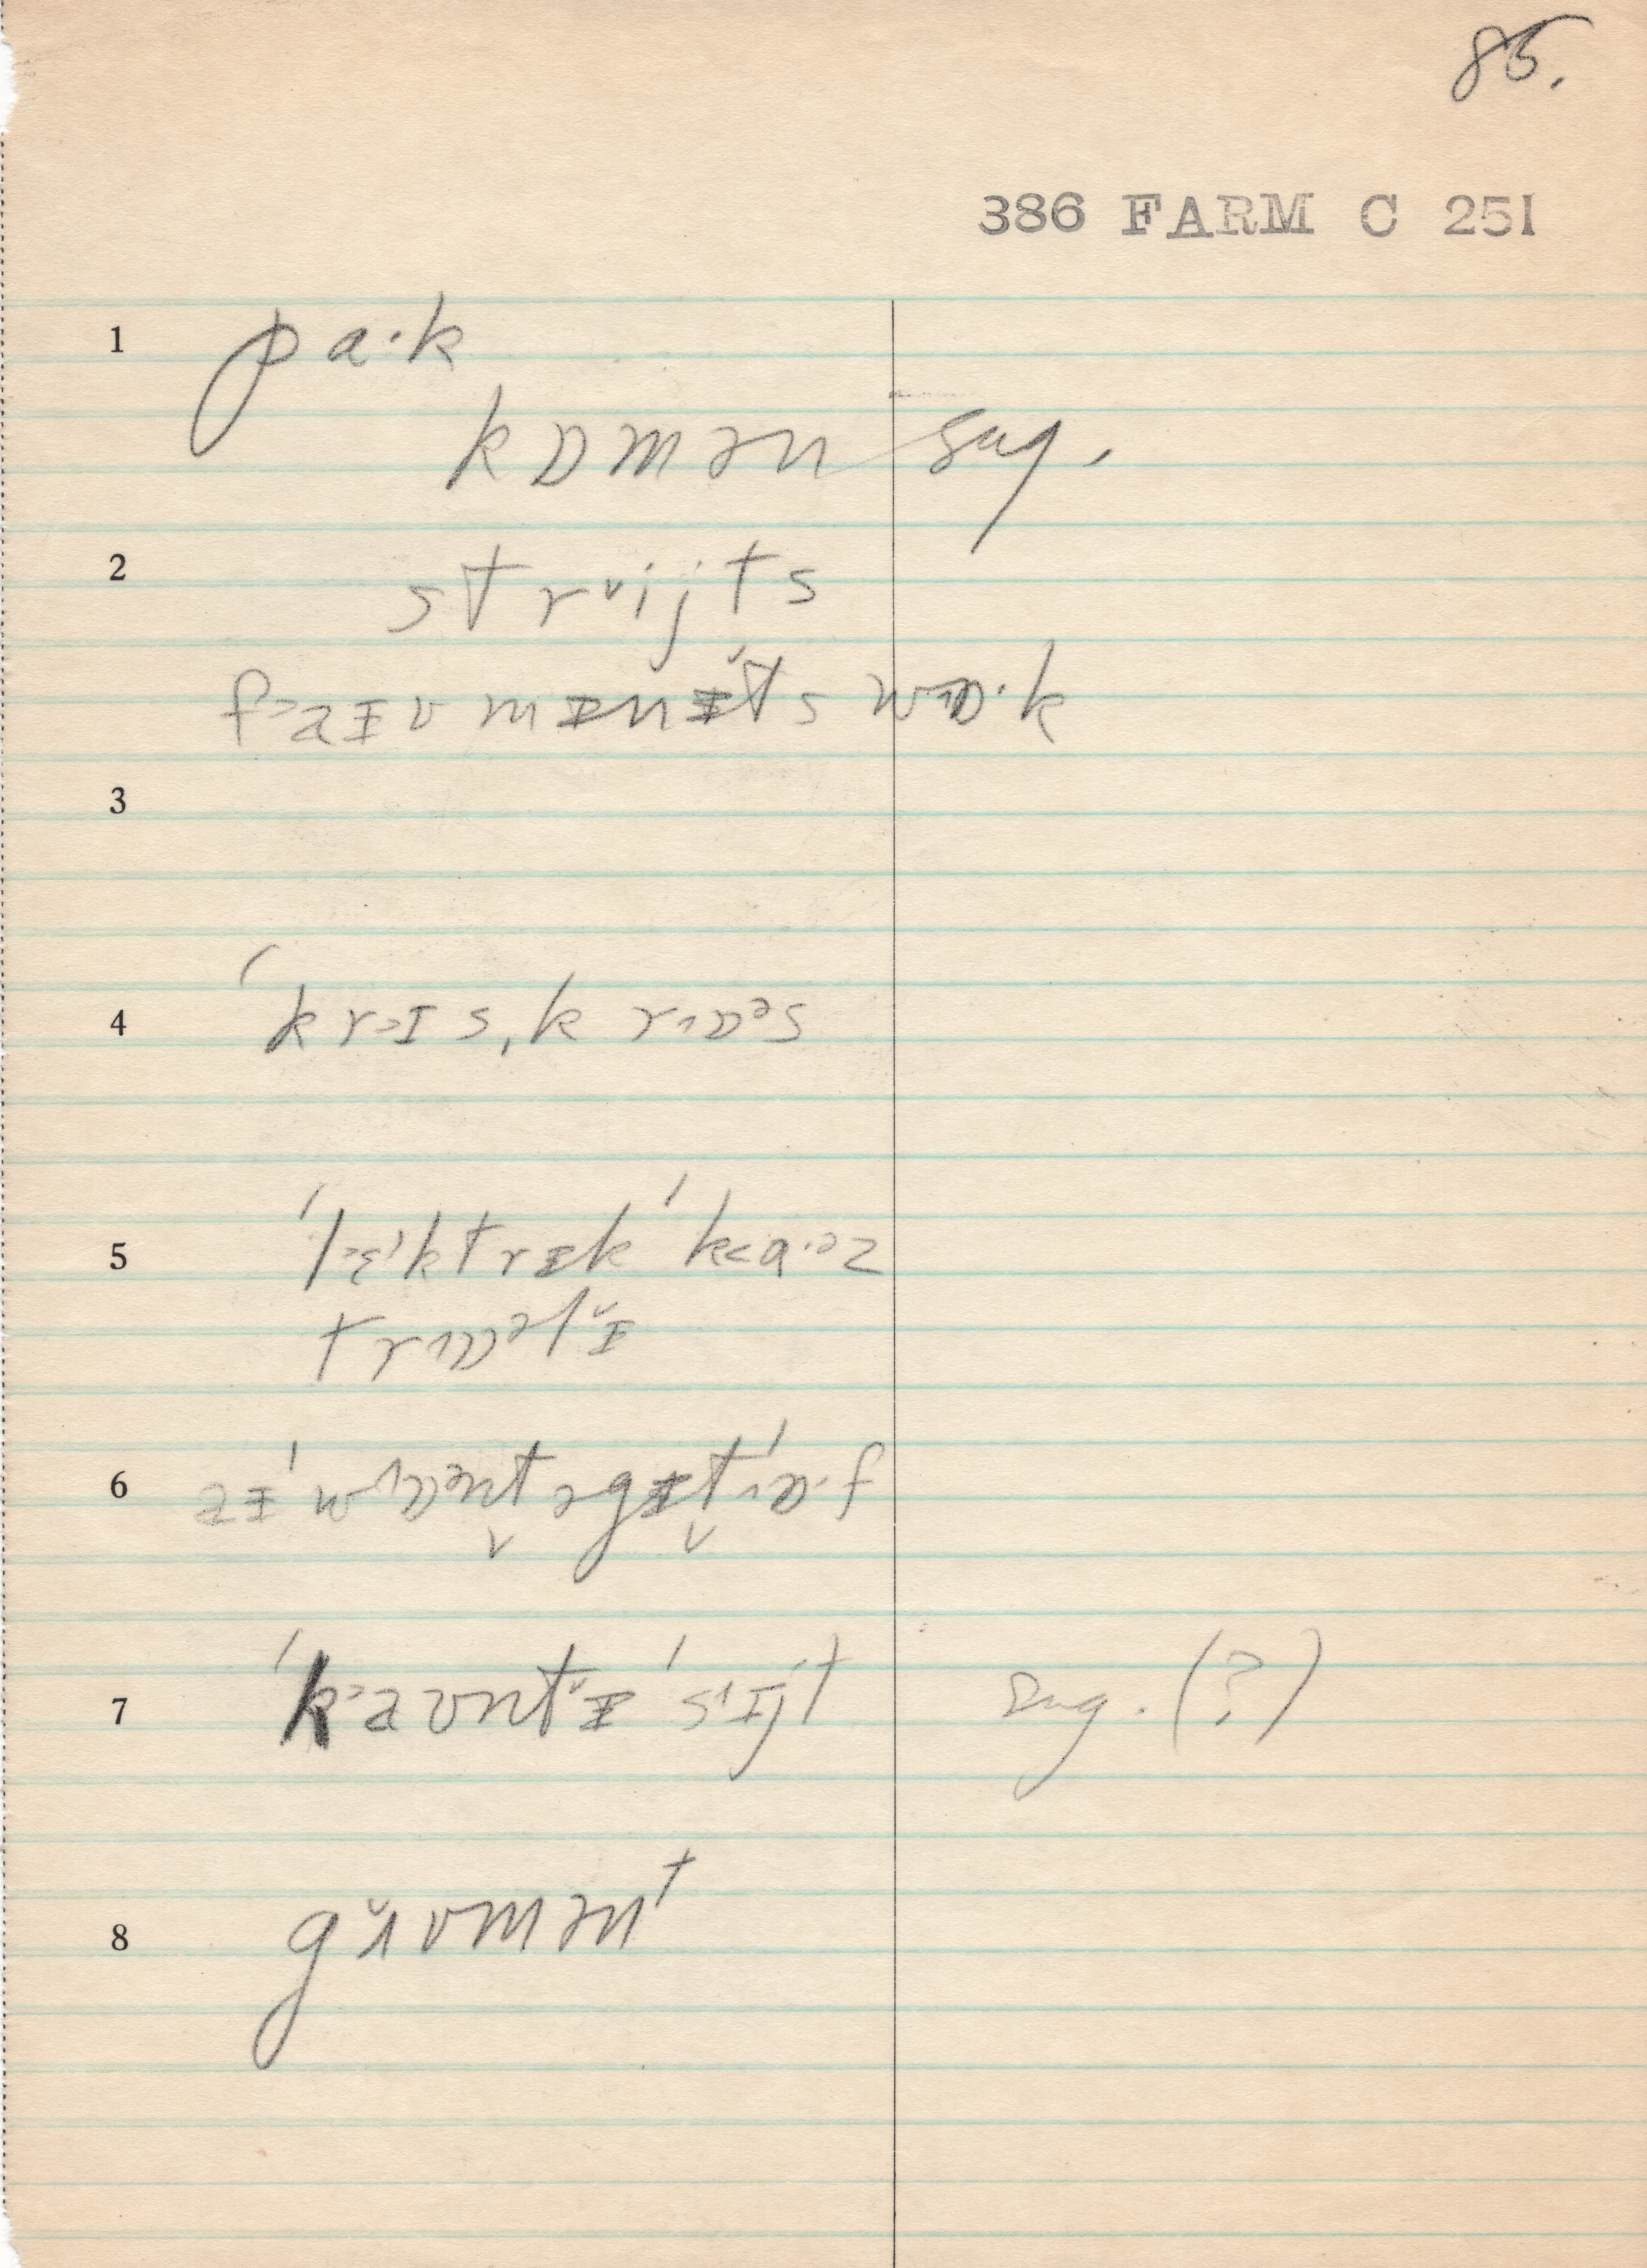 85.
386 FARM C 251
1 pa·k
kɒmən sug.
2 strᵛijts
f˃aɪvmɪnɪ̆ts wɒ·k
3
4 ˈkr˃ɪs,krɒᵊs
5 ˈl˃ɛᵎktrɪkˈk˂ɑ·ᵊz
trɒᵊlɪ̆
6 aɪˈwɒᵊntəgɪtˈɒ·f
7 ˈk˃aʊntɪ̆ˈsɪjt sug.(?)
8 gʌ̆vmənt